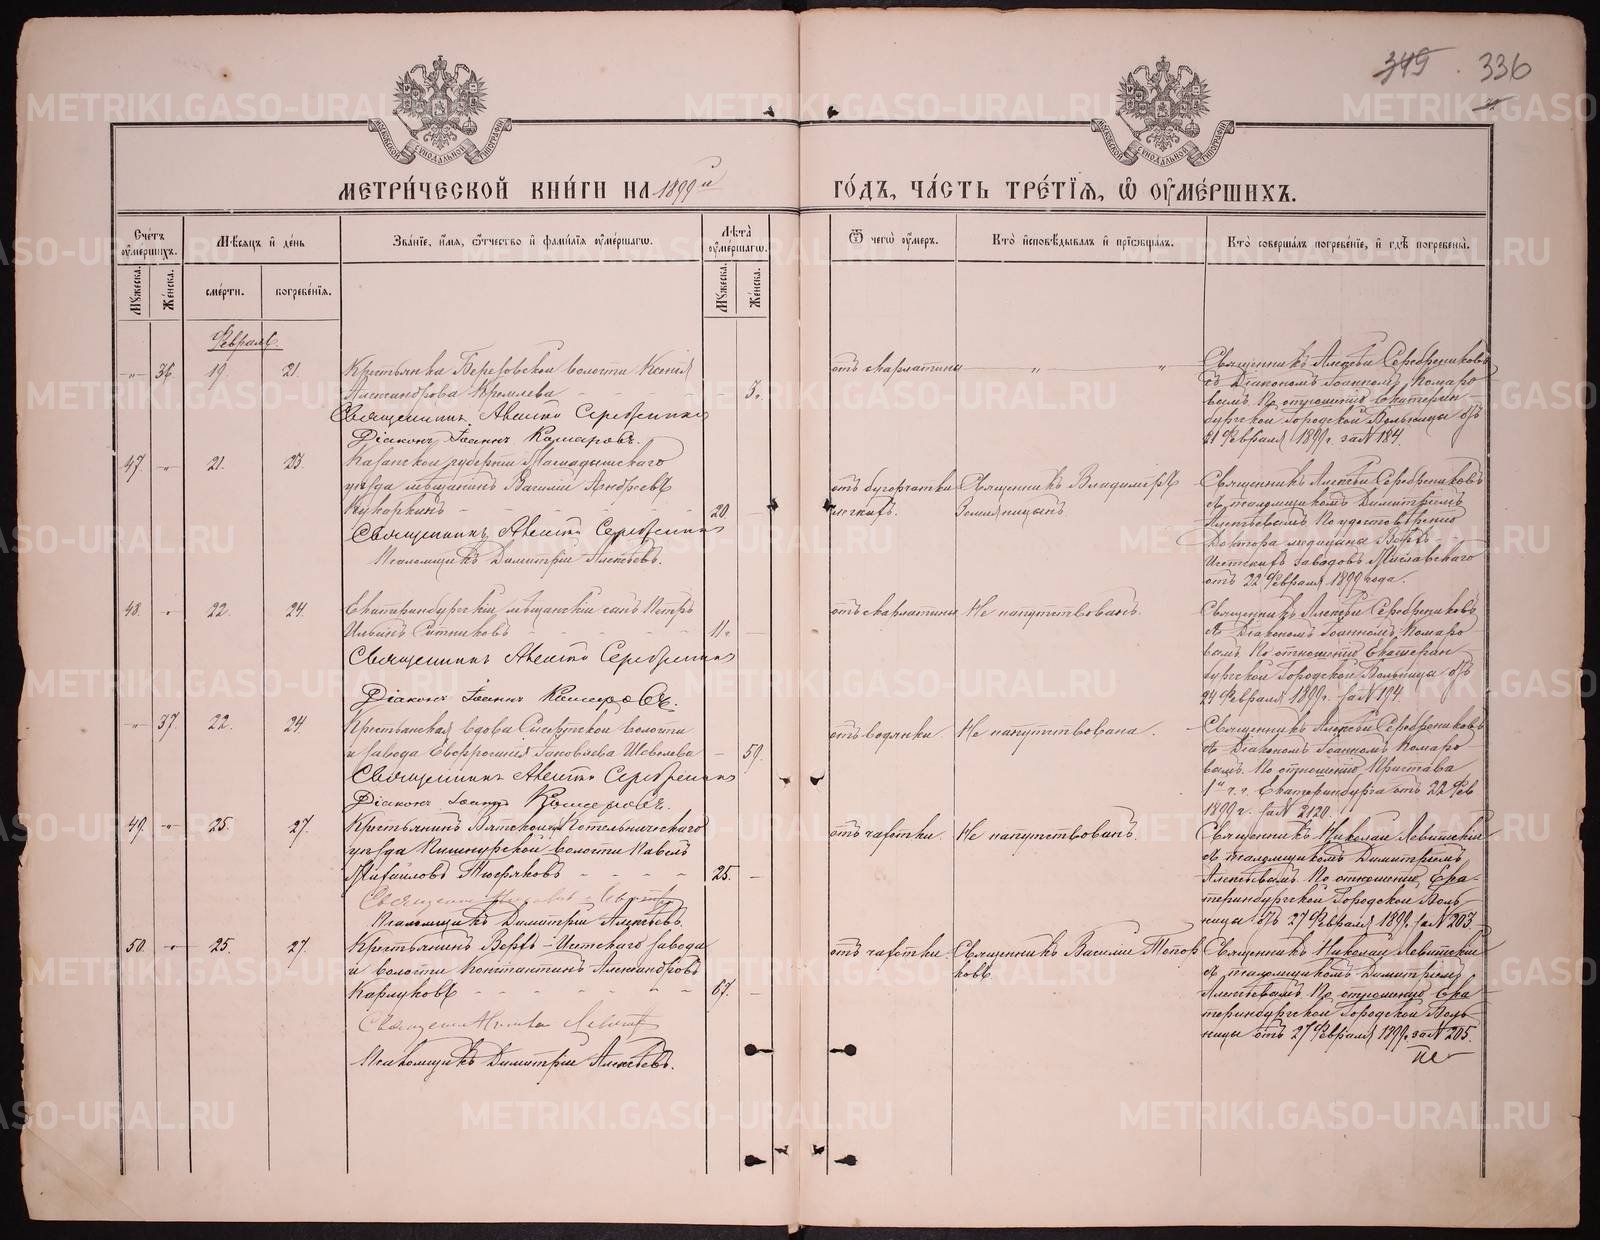 349. 336
МЕТРИ́ЧЕСКОЙ КНИ́ГИ НА 1899й ГО́ДЪ, ЧА́СТЬ ТРЕ́ТІѦ, Ѽ ОУ҆МЕ́РШИХЪ.
Сче́тъ оу҆ме́ршихъ.
Мꙋ́жеска.
Же́нска.
Мѣ́сѧцъ и҆ де́нь
сме́рти.
погребе́нїѧ.
Зва́нїе, и҆́мѧ, ѻ҆́тчество и҆ фами́лїѧ оу҆ме́ршагѡ.
Лѣ́та оу҆ме́ршагѡ.
Мꙋ́жеска.
Же́нска.
Ѿ чегѡ̀ оу҆́меръ.
Кто̀ и҆сповѣ́дывалъ и҆ прїѡбща́лъ.
Кто̀ соверша́лъ погребе́нїе, и҆ гдѣ̀ погребены̀.
Февраль.
-„- 36. 19. 21. Крестьянка Березовской волости Ксенія
Александрова Кремлева - - - - 3.
Священникъ Алексій Серебренниковъ
Діаконъ Іоаннъ Комаровъ.
отъ скарлатины „ „
Священникъ Алексѣй Серебрениковъ
съ Діакономъ Іоанномъ Комаро
вымъ. По отношенію Екатерин
бургской Городской Больницы отъ
21 Февраля 1899 г. за № 184.
47. -„- 21. 23. Казанской губерніи Мамадышскаго
уѣзда мѣщанинъ Василій Андреевъ
Кукаркинъ - - - - 20 -
Священникъ Алексій Серебренниковъ
Псаломщикъ Димитрій Алексѣевъ.
отъ бугорчатки
легкихъ.
Священникъ Владиміръ
Земляницынъ.
Священникъ Алексѣй Серебрениковъ
съ псаломщикомъ Димитріемъ
Алексѣевымъ. По удостовѣренію
Доктора медицины Верхъ-
Исетскихъ заводовъ Миславскаго
отъ 22 Февраля 1899 года.
48. „ 22. 24. Екатеринбургскій мѣщанскій сынъ Петръ
Ильинъ Ситниковъ - - - - 11. -
Священникъ Алексій Серебренниковъ
Діаконъ Іоаннъ Комаровъ.
отъ скарлатины Не напутствованъ.
Священникъ Алексѣй Серебрениковъ
съ Діакономъ Іоанномъ Комаро
вымъ. По отношенію Екатерин
бургской Городской Больницы отъ
24 Февраля 1899 г. за № 194.
„ 37. 22. 24. Крестьянская вдова Сысертской волости
и завода Евфросинія Іаковлева Шевелева - 59.
Священникъ Алексій Серебренниковъ
Діаконъ Іоаннъ Комаровъ.
отъ водянки. Не напутствована.
Священникъ Алексѣй Серебрениковъ
съ Діакономъ Іоанномъ Комаро
вымъ. По отношенію Пристава
1й ч. г. Екатеринбурга отъ 22 Фев
1899 г. за № 2120.
49. -„- 25. 27. Крестьянинъ Вятской г. Котельническаго
уѣзда Кишнурской волости Павелъ
Михаиловъ Тюфяковъ - - - - 25. -
Псаломщикъ Димитрій Алексѣевъ.
отъ чахотки. Не напутствованъ.
Священникъ Николай Левитскій
съ псаломщикомъ Димитріемъ
Алексѣевымъ. По отношенію Ека-
теринбургской Городской Боль
ницы отъ 27 Февраля 1899 г. за № 203.
50. -„- 25. 27. Крестьянинъ Верхъ-Исетскаго завода
и волости Константинъ Александровъ
Карлуковъ - - - - 67. -
Псаломщикъ Димитрій Алексѣевъ.
отъ чахотки. Священникъ Василій Топор
ковъ.
Священникъ Николай Левитскій
съ псаломщикомъ Димитріемъ
Алексѣевымъ. По отношенію Ека
теринбургской Городской Боль
ницы отъ 27 Февраля 1899 г. за № 205.